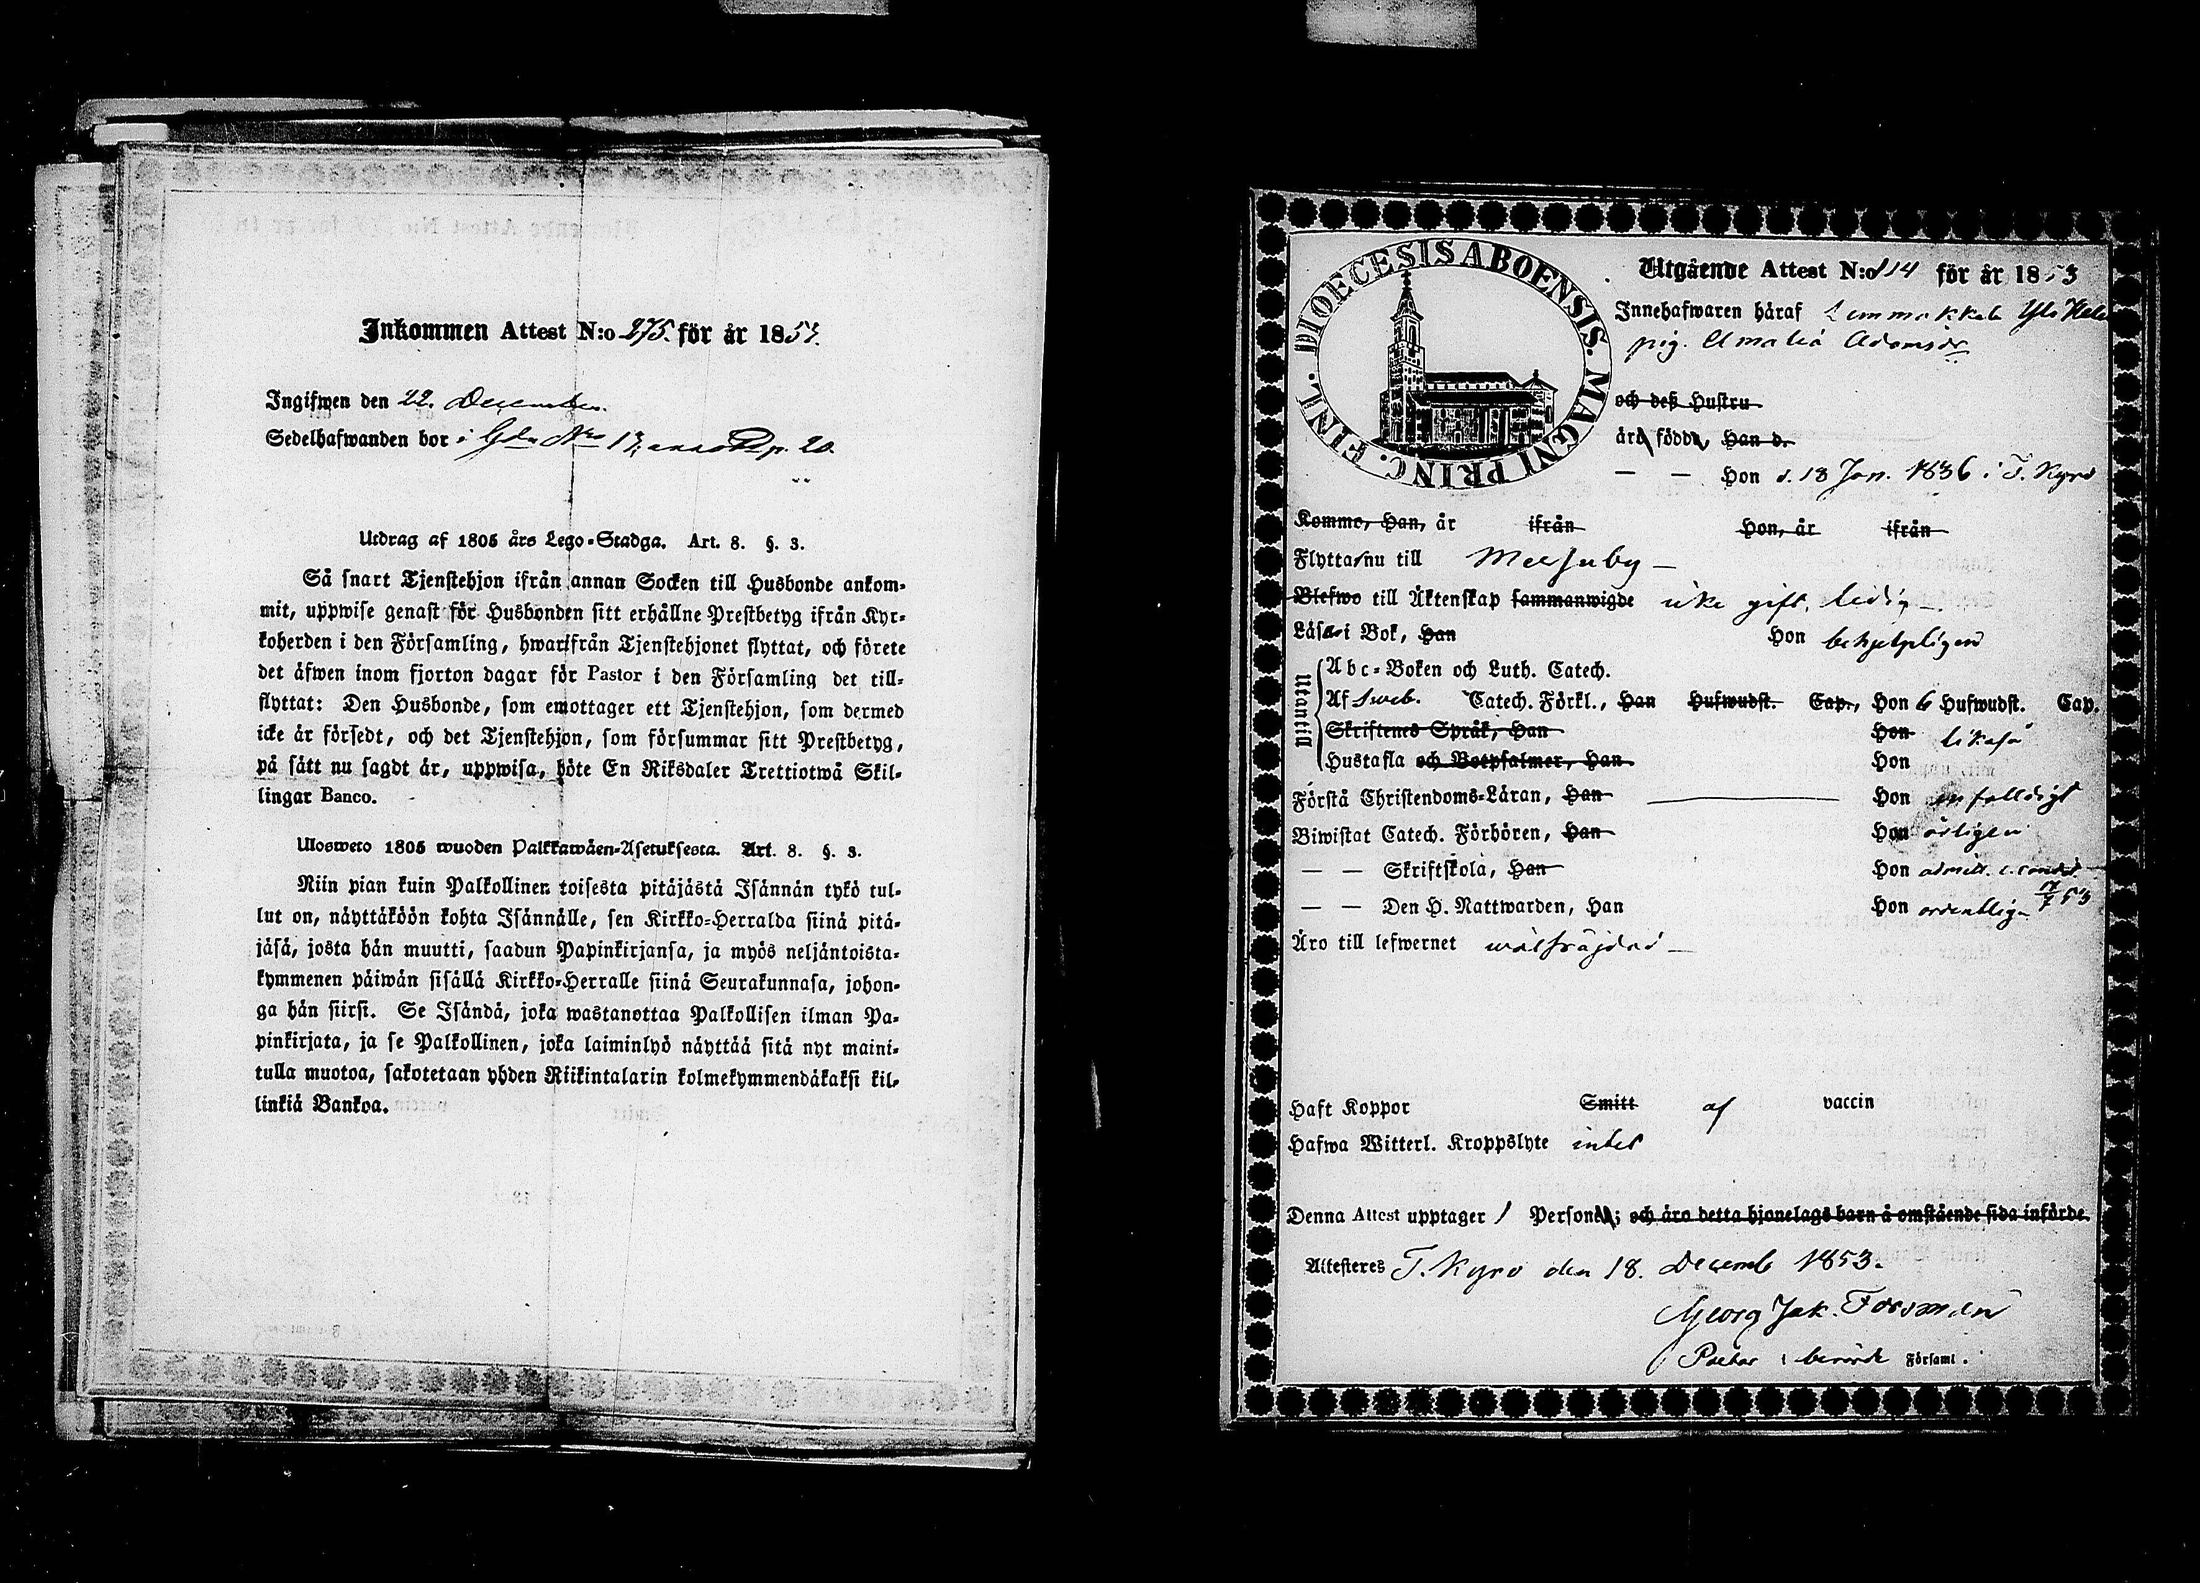 Inkommen Attest N:o 275. för år 185
Ingifwen den 22. December.
Sedelhafwanden bor i Gdn No 13, p. 20.
Utdrag af 1805 års Lego-Stadga. Art. 8. §. 3.
Så snart Tjenstehjon ifrån annan Socken till Husbonde ankom-
mit, uppwise genast för Husbonden sitt erhållne Prestbetyg ifrån Kyr-
koherden i den Församling, hwarifrån Tjenstehjonet flyttat, och förete
det äfwen inom fjorton dagar för Pastor i den Församling det till-
flyttat: Den Husbonde, som emottager ett Tjenstehjon, som dermed
icke är försedt, och det Tjenstehjon, som försummar sitt Prestbetyg,
på sätt nu sagdt är, uppwisa, böte En Riksdaler Trettiotwå Skil-
lingar Banco.
Ulosweto 1805 wuoden Palkkawäen-Asetuksesta. Art. 8. §. 3.
Niin pian kuin Palkollinen toisesta pitäjästä Isännän tykö tul-
lut on, näyttäköön kohta Isännälle, sen Kirkko-Herralda siinä pitä-
jäsä, josta hän muutti, saadun Papinkirjansa, ja myös neljäntoista-
kymmenen päiwän sisällä Kirkko-Herralle siinä Seurakunnasa, johon-
ga hän siirsi. Se Isändä, joka wastanottaa Palkollisen ilman Pa-
pinkirjata, ja se Palkollinen, joka laiminlyö näyttää sitä nyt maini-
tulla muotoa, sakotetaan yhden Riikintalarin kolmekymmendäkaksi kil-
linkiä Bankoa.
DIOECESIS ABOENSIS. MAGNI PRINC. FINL.
Utgående Attest N:o 114 för år 1853
Innehafwaren häraf Lemmakkala Yls
pig. Amalia Adamsdr
och deß Hustru
äro födde, Han d.
— — Hon d. 18 Jan. 1836 i T. Kyro
Komme, Han, år ifrån Hon, år ifrån
Flytta nu till
Blefwo till Äktenskap sammanwigde icke gift, ledig
Läsa i Bok, Han Hon behjelpligen
Utantill
Abc-Boken och Luth. Catech.
Af Sweb. Catech. Förkl., Han Hufwudst. Cap., Hon 6 Hufwudst. Cap.
Skriftenes Språk, Han Hon likaså
Hustafla och Botpsalmer, Han Hon
Förstå Christendoms-Läran, Han Hon enfalldigt
Biwistat Catech. Förhören, Han Hon årligen
— — Skriftskola, Han Hon admitt.
— — Den H. Nattwarden, Han Hon ordentlign 53
Äro till lefwernet wälfräjdad
Haft Koppor Smitt af vaccin
Hafwa Witterl. Kroppslyte intet
Denna Attest upptager 1 Personer; och äro detta hjonelags barn å omstående sida införde.
Attesteres T. Kyro den 18. Decemb 1853.
Georg Jak. Forsman
Pastor i berörde Församl.